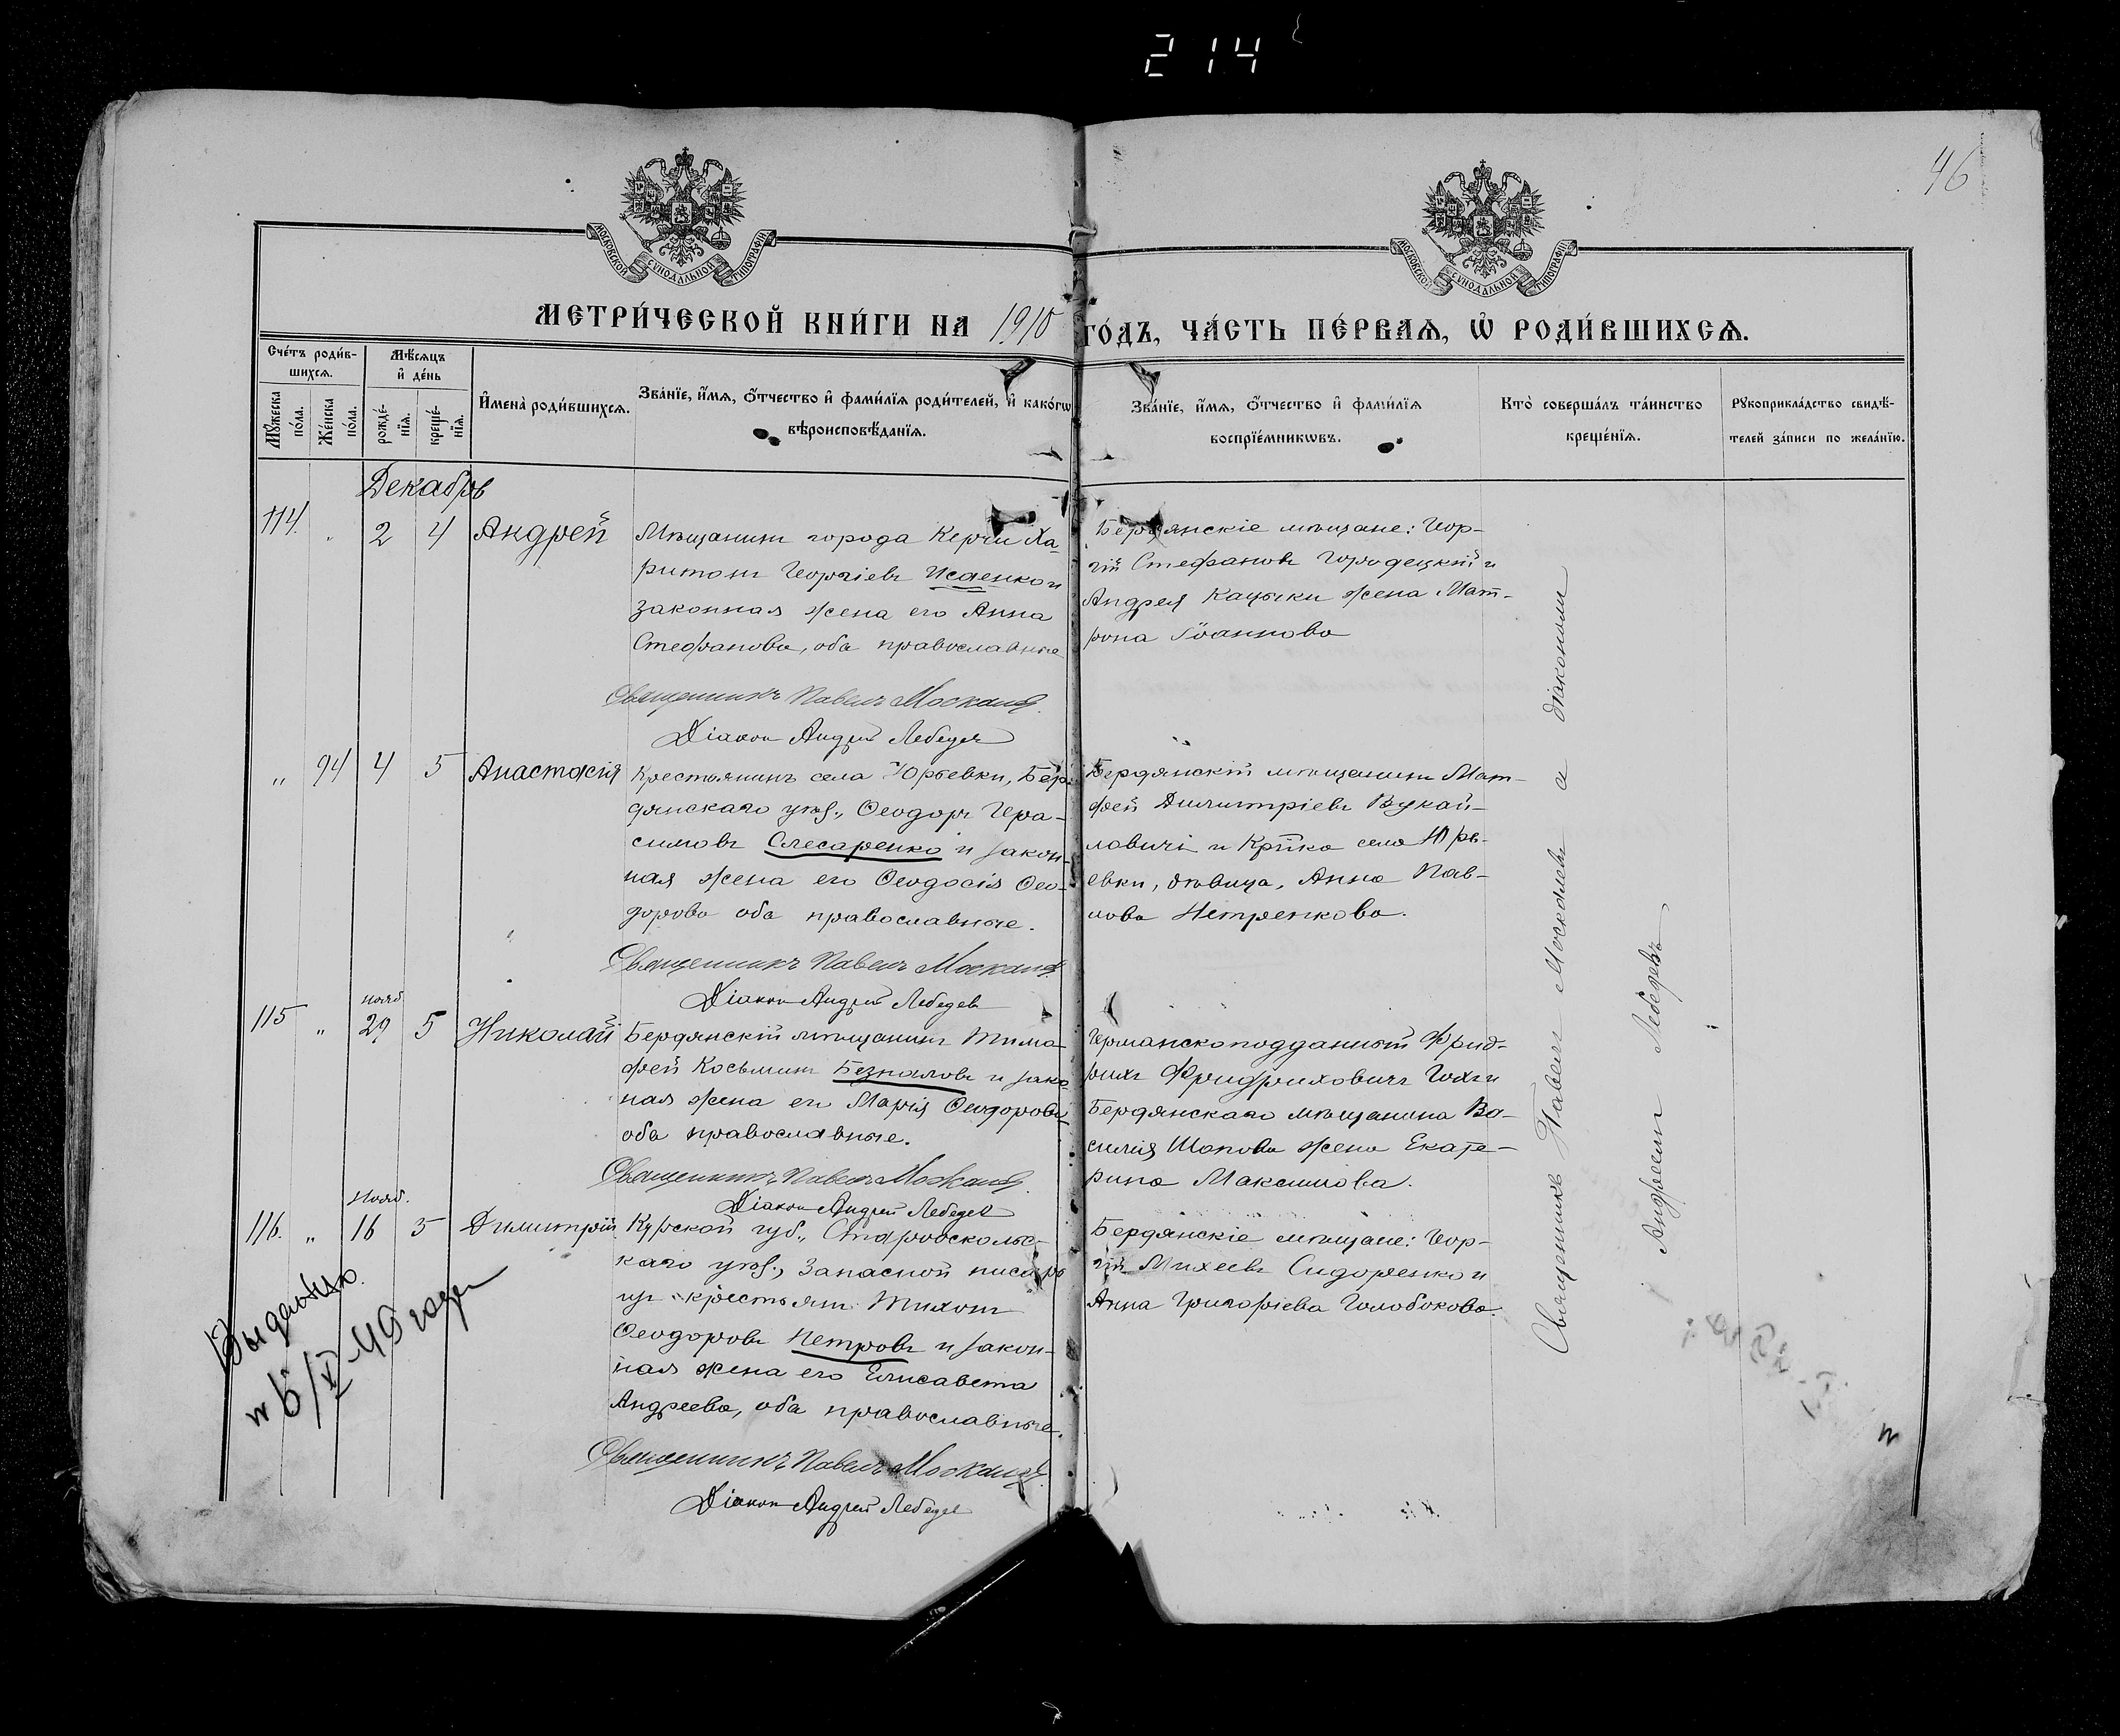 214
46
МОСКОВСКОЙ СѴНОДАЛЬНОЙ ТИПОГРАФІИ
МОСКОВСКОЙ СѴНОДАЛЬНОЙ ТИПОГРАФІИ
МЕТРИ́ЧЕСКОЙ КНИ́ГИ НА 1910 ГО́ДЪ, ЧА́СТЬ ПЕ́РВАЯ, Ѡ РОДИ́ВШИХСЯ.
Сче́тъ роди́в-
шихся.
Мѣ́сяцъ
и҆ де́нь
Му́жеска
по́ла.
Же́нска
по́ла.
рожде́-
нїя.
креще́-
нїя.
И҆мена̀ роди́вшихся.
Зва́нїе, и҆́мя, ѻ҆́тчество и҆ фами́лїя роди́телей, и҆ како́гѡ
вѣроисповѣ́данїя.
Зва́нїе, и҆́мя, ѻ҆́тчество и҆ фами́лїя
воспрїе́мникѡвъ.
Кто̀ соверша́лъ та́инство
креще́нїя.
Рꙋкоприкла́дство свидѣ́-
телей за́писи по жела́нїю.
Декабрь
114. " 2 4 Андрей
Мѣщанинъ города Керчи Ха-
ритонъ Георгіевъ Исаенко и
законная жена его Анна
Стефанова, оба православные
Священникъ Павелъ
Діаконъ Андрей Лебедевъ
Бердянскіе мѣщане: Геор-
гій Стефановъ Городецкій и
Андрея жена Мат-
рона Іоаннова
" 94 4 5 Анастасія
Крестьянинъ села Юрьевки, Бер-
дянскаго уѣз., Ѳеодоръ Гера-
симовъ Слесаренко и закон-
ная жена его Ѳеодосія Ѳео-
дорова оба православные.
Священникъ Павелъ
Діаконъ Андрей Лебедевъ
Бердянскій мѣщанинъ Мат-
фей Димитріевъ Вукай-
ловичъ и Кр̃нка села Юрь-
евки, дѣвица, Анна Пав-
лова Петренкова.
115 " нояб. 29 5 Николай
Бердянскій мѣщанинъ Тимо-
фей Косьминъ Безпаловъ и закон
ная жена его Марія Ѳеодорова
оба православные.
Священникъ Павелъ
Діаконъ Андрей Лебедевъ
Германскоподданный Фрид-
рихъ Фридриховичъ и
Бердянскаго мѣщанина Ва-
силія Шапова жена Екате-
рина Максимова.
116. " Нояб. 16 5 Димитрій
Курской губ., Старооскольс-
каго уѣз., Запасной писарь
изъ крестьянъ Тихонъ
Ѳеодоровъ Петровъ и закон-
ная жена его Елисавета
Андреева, оба православные.
Священникъ Павелъ
Діаконъ Андрей Лебедевъ
Бердянскіе мѣщане: Геор-
гій Михеевъ Сидоренко и
Анна Григорьева Голобокова.
Священникъ Павелъ діакономъ
Андреемъ Лебедевъ